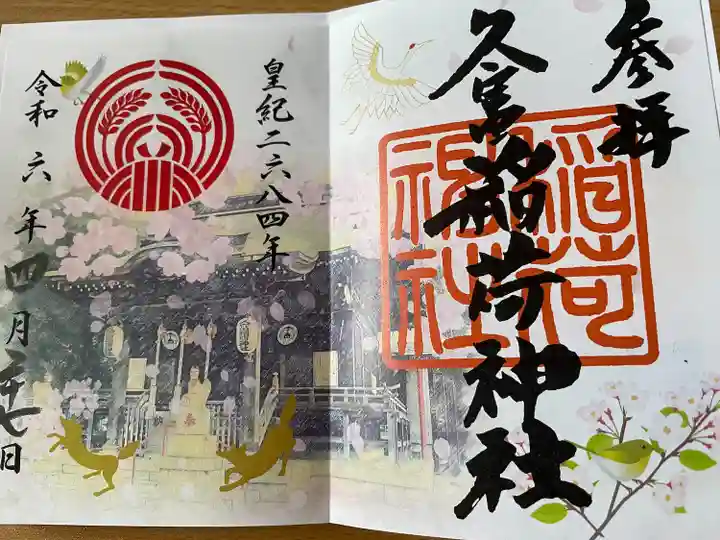 參拝
久富稲荷神社
稲荷
神社
皇紀二六八四年
令和六年四月二十七日